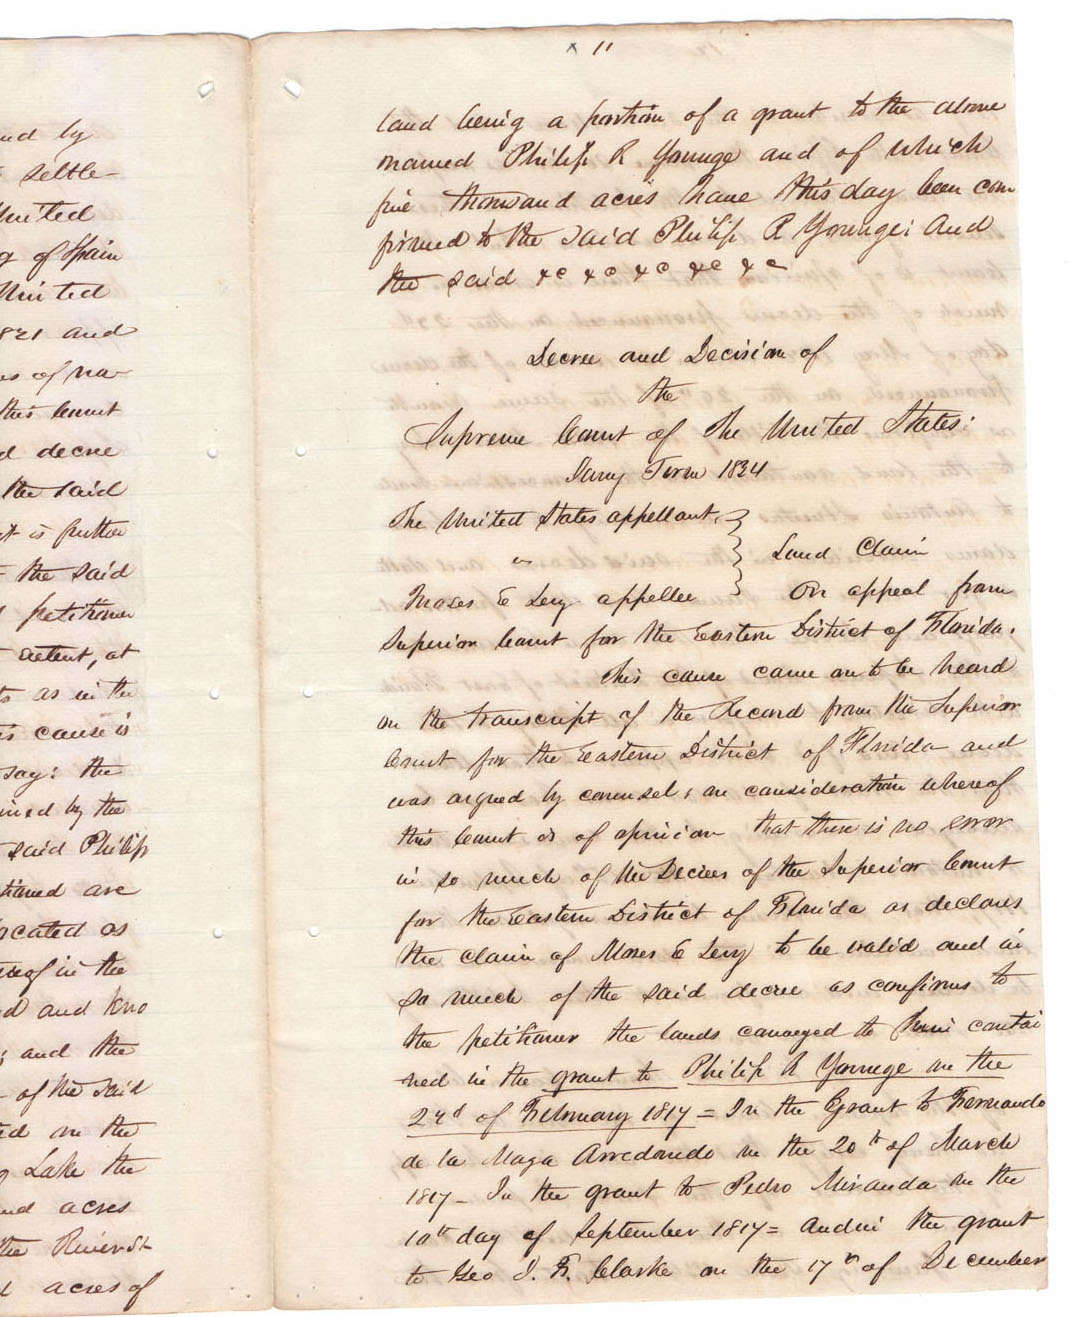 nd by
settle-
United
g of Spain
United
1821 and
es of na-
this Court
d decree
the said
it is further
the said
petitioner
extent, at
ts as in the
is cause is
say: the
ined by the
said Philip
tioned are
located as
thereof in the
d and kno
; and the
of the said
ed on the
g Lake the
nd acres
the River St
d acres of
x 11
land being a portion of a grant to the above
named Philip R Younge and of which
five thousand acres have this day been con
firmed to the said Philip R Younge: And
the said &c &c &c &c &c
Decree and Decision of
the
Supreme Court of The United States:
Jany Term 1834
The United States appellant,
vs
Moses E Levy appellee
Land Claim
On appeal from
Superior Court for the Eastern District of Florida.
This cause came on to be heard
on the transcript of the Record from the Superior
Court for the Eastern District of Florida and
was argued by counsel; on consideration whereof
this Court is of opinion that there is no error
in so much of the Decree of the Superior Court
for the Eastern District of Florida as declares
the claim of Moses E Levy to be valid and in
so much of the said decree as confirms to
the petitioner the lands conveyed to him contai
ned in the grant to Philip R Younge on the
22d of February 1817 = In the Grant to Fernando
de la Maza Arredondo on the 20th of March
1817 - In the grant to Pedro Miranda on the
10th day of September 1817 = and in the grant
to Geo J. F. Clarke on the 17th of December